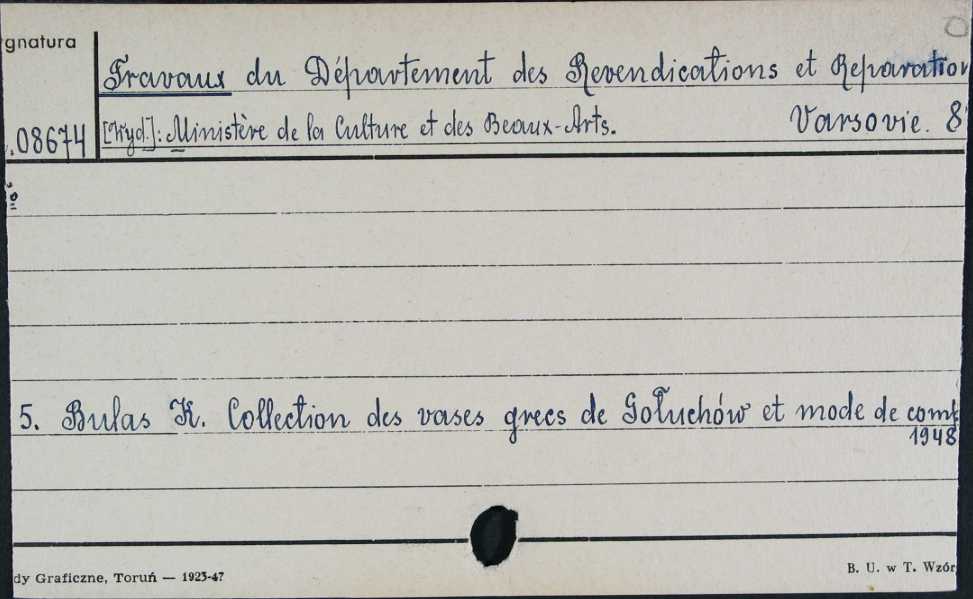 gnatura
Travaux du Département des Revendications et Reparation
.08674 [Wyd.]: Ministère de la Culture et des Beaux-Arts. Varsovie. 8
5. Bulas K. Collection des vases grecs de Gołuchów et mode de comb
1948
dy Graficzne, Toruń — 1923-47 B. U. w T. Wzór